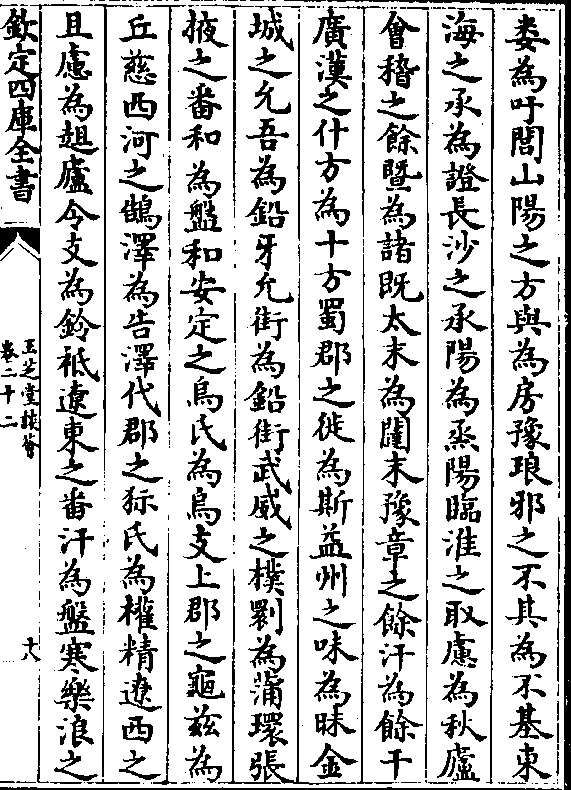 婁為吁閭山陽之方與為房豫琅邪之不其為不基東
海之承為證長沙之承陽為烝陽臨淮之取慮為秋廬
會稽之餘暨為諸既太末為闥末豫章之餘汗為餘干
廣漢之什方為十方蜀郡之徙為斯益州之味為昧金
城之允吾為鉛牙允街為鉛街武威之樸劉為蒲環張
掖之番和為盤和安定之烏氏為烏支上郡之龜兹為
丘慈西河之鵠澤為告澤代郡之狋氏為權精遼西之
且慮為趄廬令支為鈴袛遼東之番汗為盤寒樂浪之
欽定四庫全書
玉芝堂談薈
卷二十二
十八